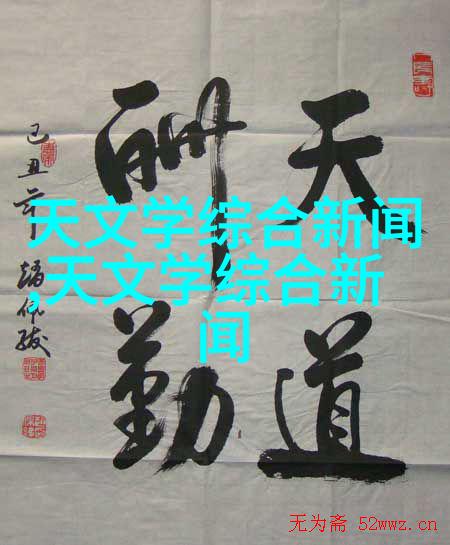 天道
酬勤
己丑年
天文学综合新闻
,天文学综合新
闻
无为斋 52wwz.cn